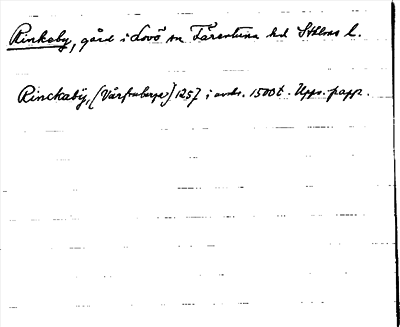 Rinkeby, gård i Lovö sn Färentuna hd Sthlms l.
Rinckaby, (Vårfruberga) 1257 i avskr. 1500 t. Upps. papp.